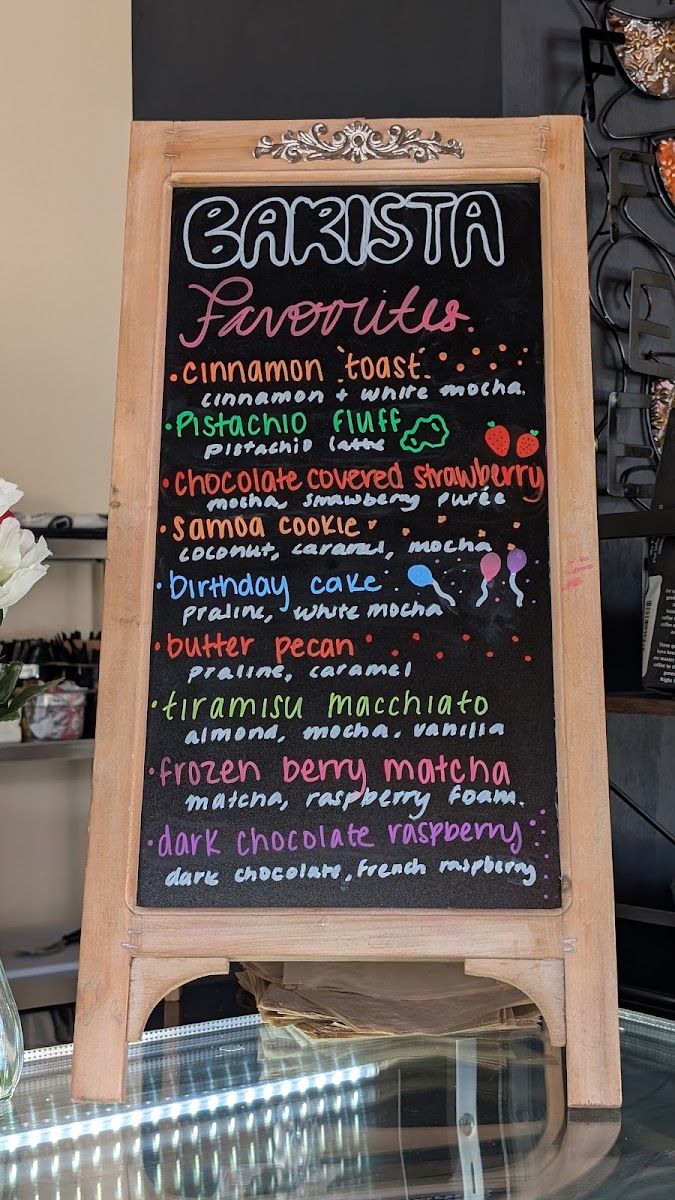 BARISTA
Favorites.
• cinnamon toast
cinnamon + white mocha.
• Pistachio fluff
Pistachio latte
• chocolate covered strawberry
mocha, smawberry purée
• samoa cookie
coconut, caramel, mocha
• birthday cake
praline, white mocha
• butter pecan
praline, caramel
• tiramisu macchiato
almond, mocha, vanilla
• frozen berry matcha
matcha, raspberry foam.
• dark chocolate raspberry
dark chocolate, french raspberry